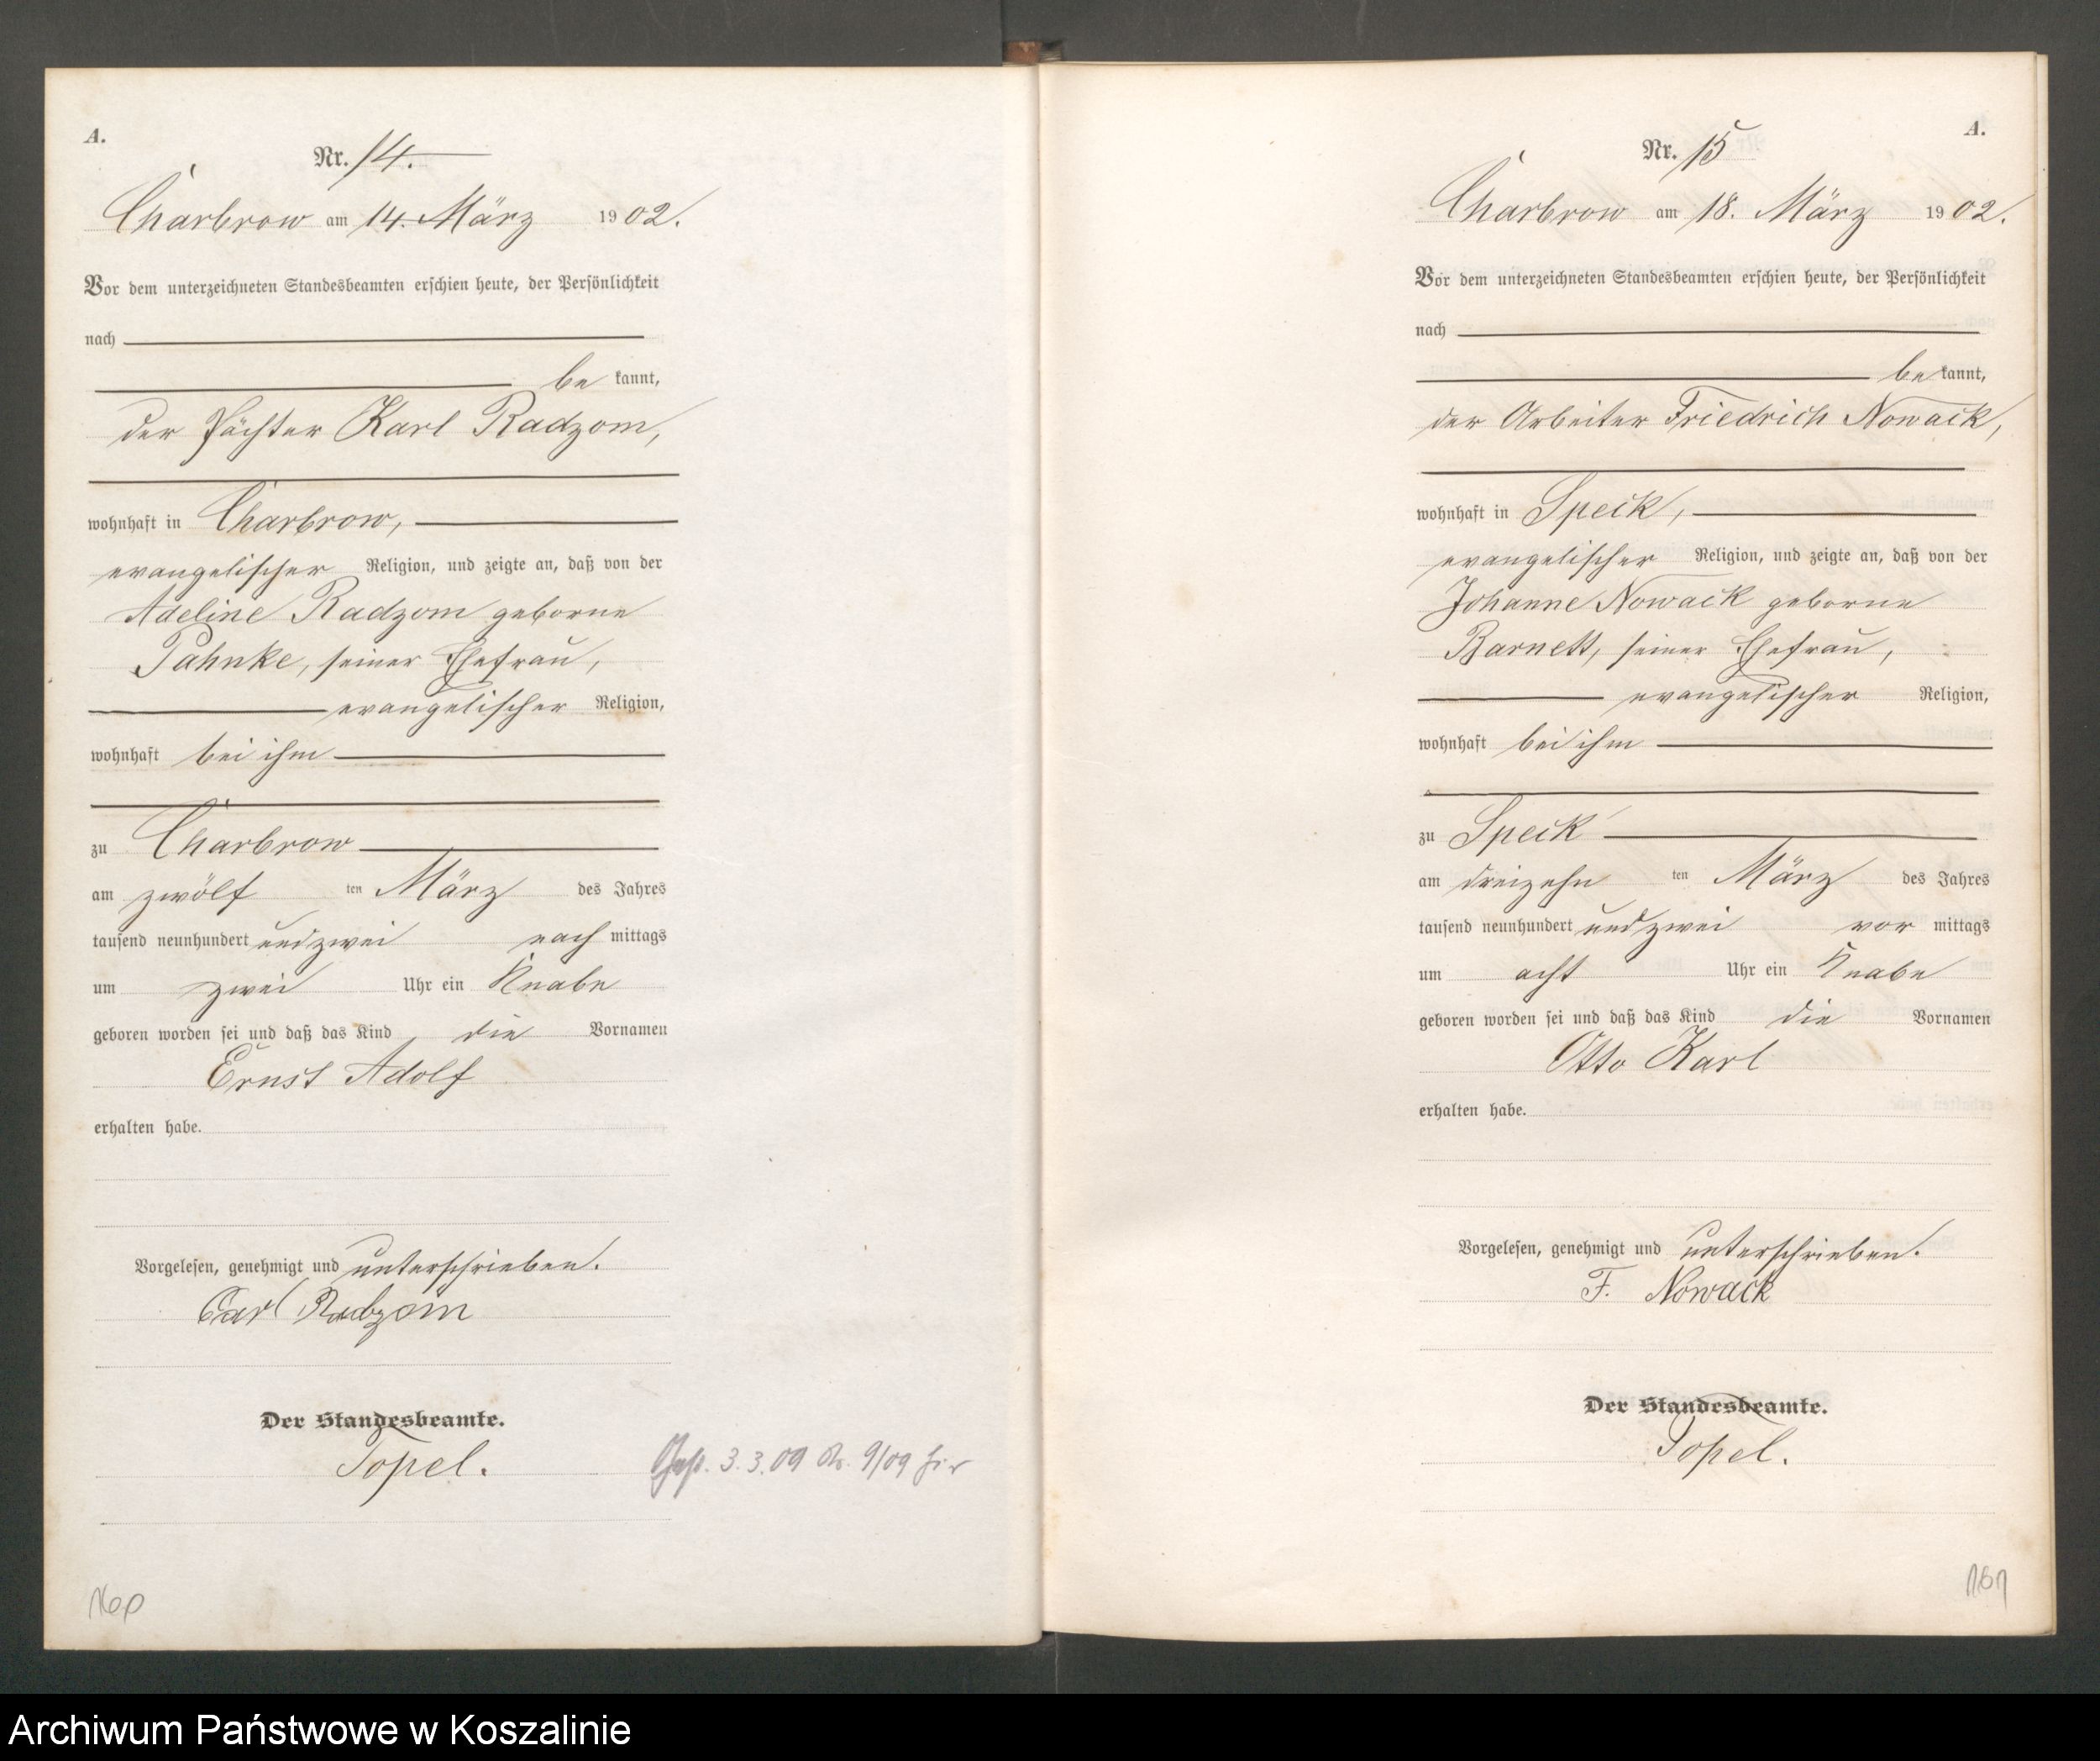 A.
Nr. 14.
Charbrow am 14. März 1902.
Vor dem unterzeichneten Standesbeamten erschien heute, der Persönlichkeit
nach
be kannt,
der Pächter Karl Radzom,
wohnhaft in Charbrow,
evangelischer Religion, und zeigte an, daß von der
Adeline Radzom geborne
Pahnke, seiner Ehefrau,
evangelischer Religion,
wohnhaft bei ihm
zu Charbrow
am zwölf ten März des Jahres
tausend neunhundert und zwei nach mittags
um zwei Uhr ein Knabe
geboren worden sei und daß das Kind die Vornamen
Ernst Adolf
erhalten habe.
Vorgelesen, genehmigt und unterschrieben.
Carl Radzom
Der Standesbeamte.
Topel.
3.3.09 9/09
160
A.
Nr. 15
Charbrow am 18. März 1902.
Vor dem unterzeichneten Standesbeamten erschien heute, der Persönlichkeit
nach
be kannt,
der Arbeiter Friedrich Nowack,
wohnhaft in Speck,
evangelischer Religion, und zeigte an, daß von der
Johanne Nowack geborne
Barnett, seiner Ehefrau,
evangelischer Religion,
wohnhaft bei ihm
zu Speck
am dreizehn ten März des Jahres
tausend neunhundert und zwei vor mittags
um acht Uhr ein Knabe
geboren worden sei und daß das Kind die Vornamen
Otto Karl
erhalten habe.
Vorgelesen, genehmigt und unterschrieben.
F. Nowack
Der Standesbeamte.
Topel.
161
Archiwum Państwowe w Koszalinie